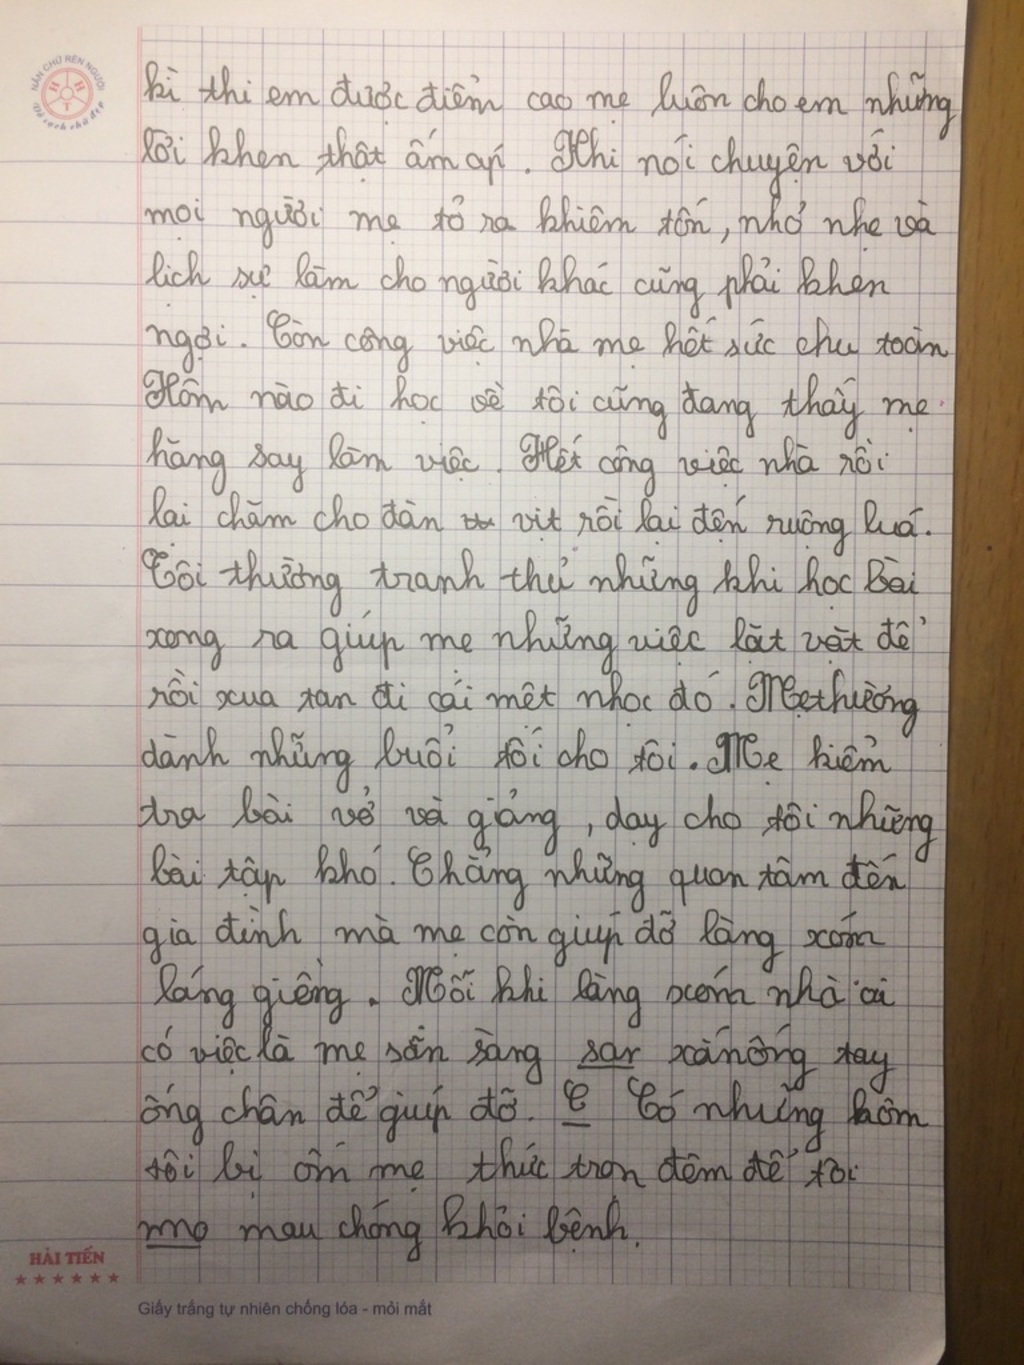 NẮN CHỮ RÈN NGƯỜI
Vở sạch chữ đẹp
kì thi em được điểm cao mẹ luôn cho em những
lời khen thật ấm áp. Khi nói chuyện với
mọi người mẹ tỏ ra khiêm tốn, nhỏ nhẹ và
lịch sự làm cho người khác cũng phải khen
ngợi. Còn công việc nhà mẹ hết sức chu toàn
Hôm nào đi học về tôi cũng đang thấy mẹ
hăng say làm việc. Hết công việc nhà rồi
lại chăm cho đàn vịt rồi lại đến ruộng luá.
Tôi thường tranh thủ những khi học bài
xong ra giúp mẹ những việc lặt vặt để
rồi xua tan đi cái mệt nhọc đó. Mẹ thường
dành những buổi tối cho tôi. Mẹ kiểm
tra bài vở và giảng, dạy cho tôi những
bài tập khó. Chẳng những quan tâm đến
gia đình mà mẹ còn giúp đỡ làng xóm
láng giềng. Mỗi khi làng xóm nhà ai
có việc là mẹ sẵn sàng sar xắn ống tay
ống chân để giúp đỡ. C Có những hôm
tôi bị ốm mẹ thức trọn đêm để tôi
mo mau chóng khỏi bệnh.
HẢI TIẾN
Giấy trắng tự nhiên chống lóa - mỏi mắt